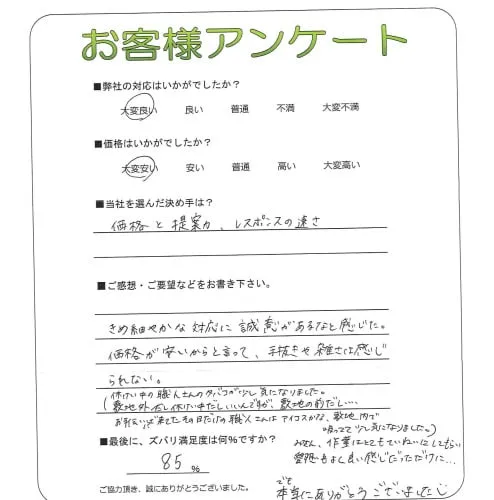 お客様アンケート
■弊社の対応はいかがでしたか？
大変良い 良い 普通 不満 大変不満
■価格はいかがでしたか？
大変安い 安い 普通 高い 大変高い
■当社を選んだ決め手は？
価格と提案力、レスポンスの速さ
■ご感想・ご要望などをお書き下さい。
きめ細やかな対応に誠意があるなと感じた。
価格が安いからと言って、手抜きや雑さは感じ
られない。
(休けい中の職人さんのタバコが少し気になりました。
敷地外だし休けい中だしいいんですが、敷地の前だし…
お手伝いに来てた日だけの職人さんはアイコスかな、敷地内で
吸ってて少し気になりました。)
みなさん、作業はとてもていねいにしてもらい
愛想もよし良い感じだっただけに…
でも
本当にありがとうございました
■最後に、ズバリ満足度は何％ですか？
85 %
ご協力頂き、誠にありがとうございました。